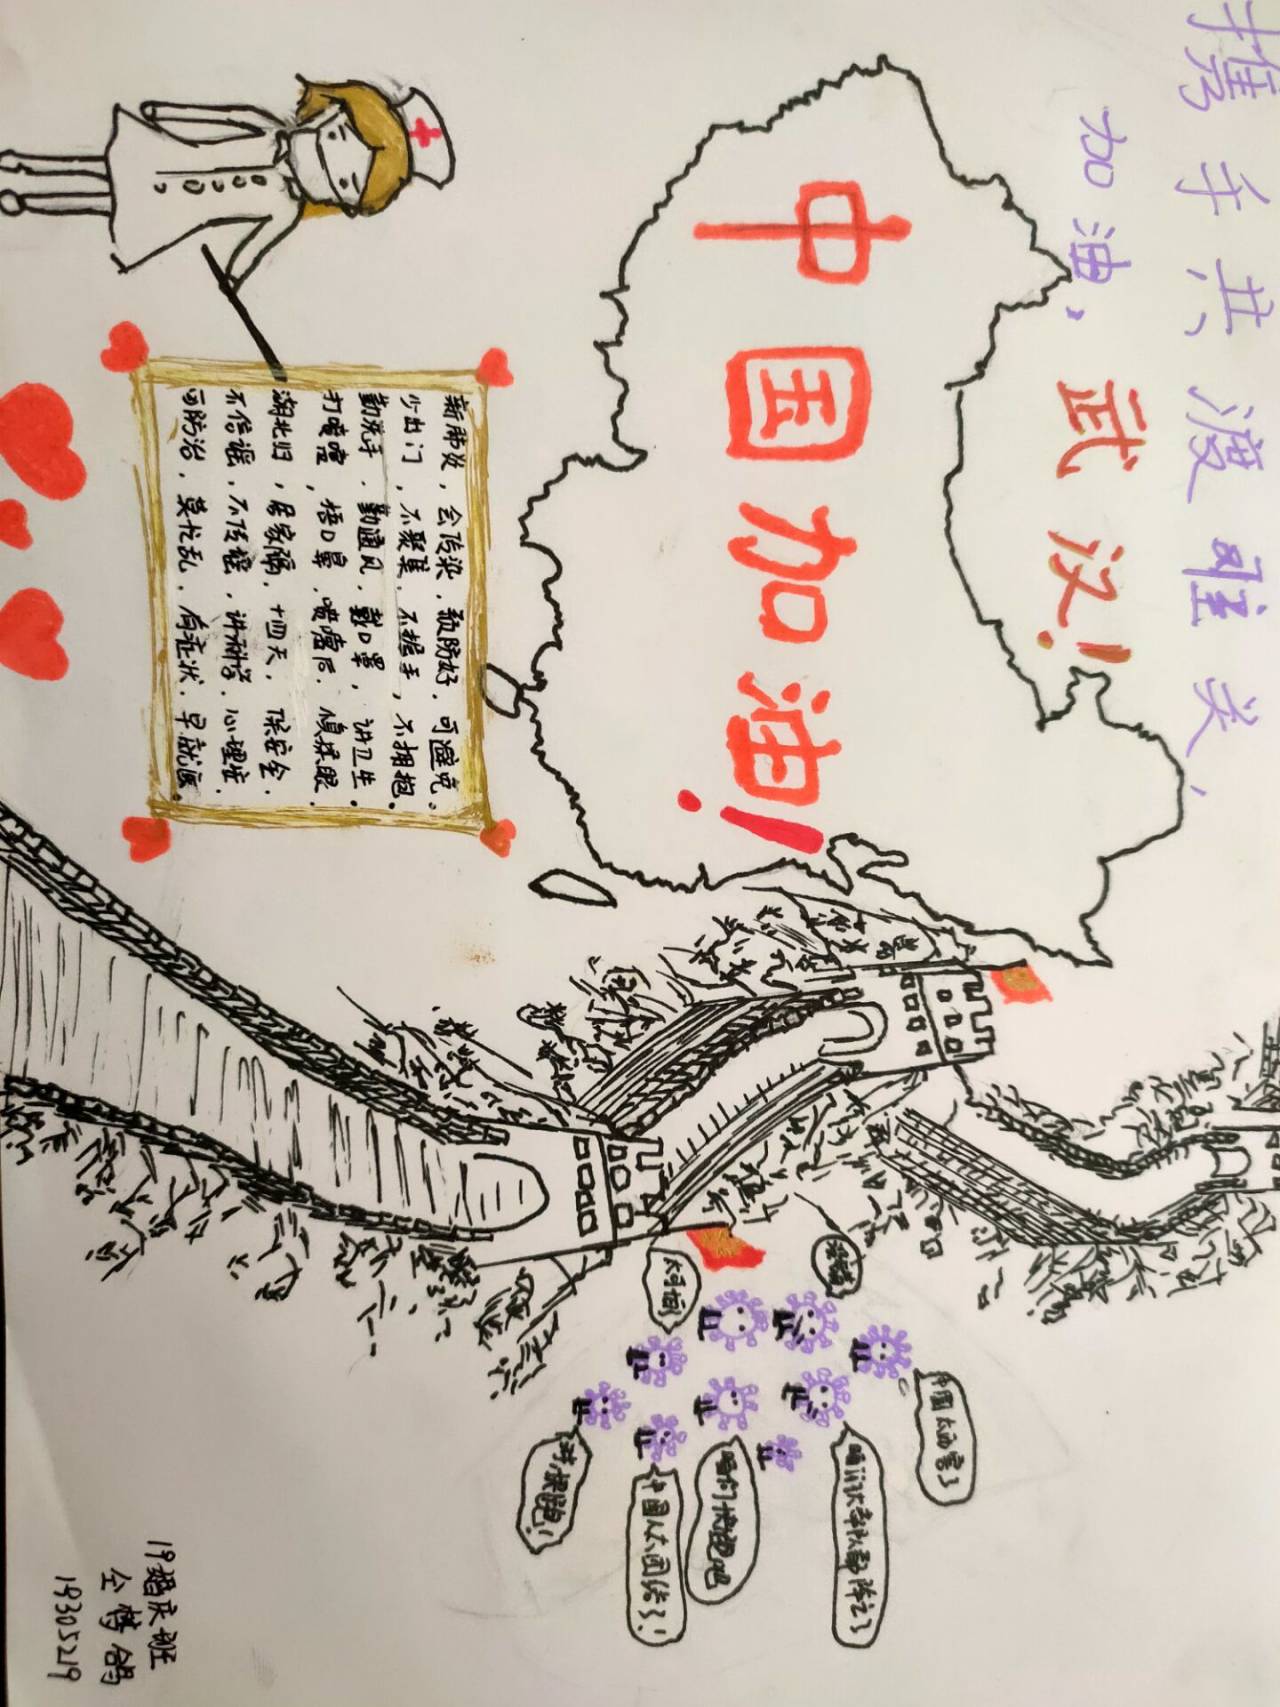 携手共渡难关、
加油，武汉！
中国加油！
新肺炎，会传染，预防好，可避免。
少出门，不聚集，不握手，不拥抱。
勤洗手，勤通风，戴口罩，讲卫生。
打喷嚏，捂口鼻，喷嚏后，慎揉眼，
湖北归，居家隔，十四天，保安全。
不信谣，不传谣，讲科学，心理安，
要防治，莫忙乱，有症状，早就医。
太可怕了
中国太厉害了
咱们快跑吧
中国人太团结了！
19婚庆班
19305219